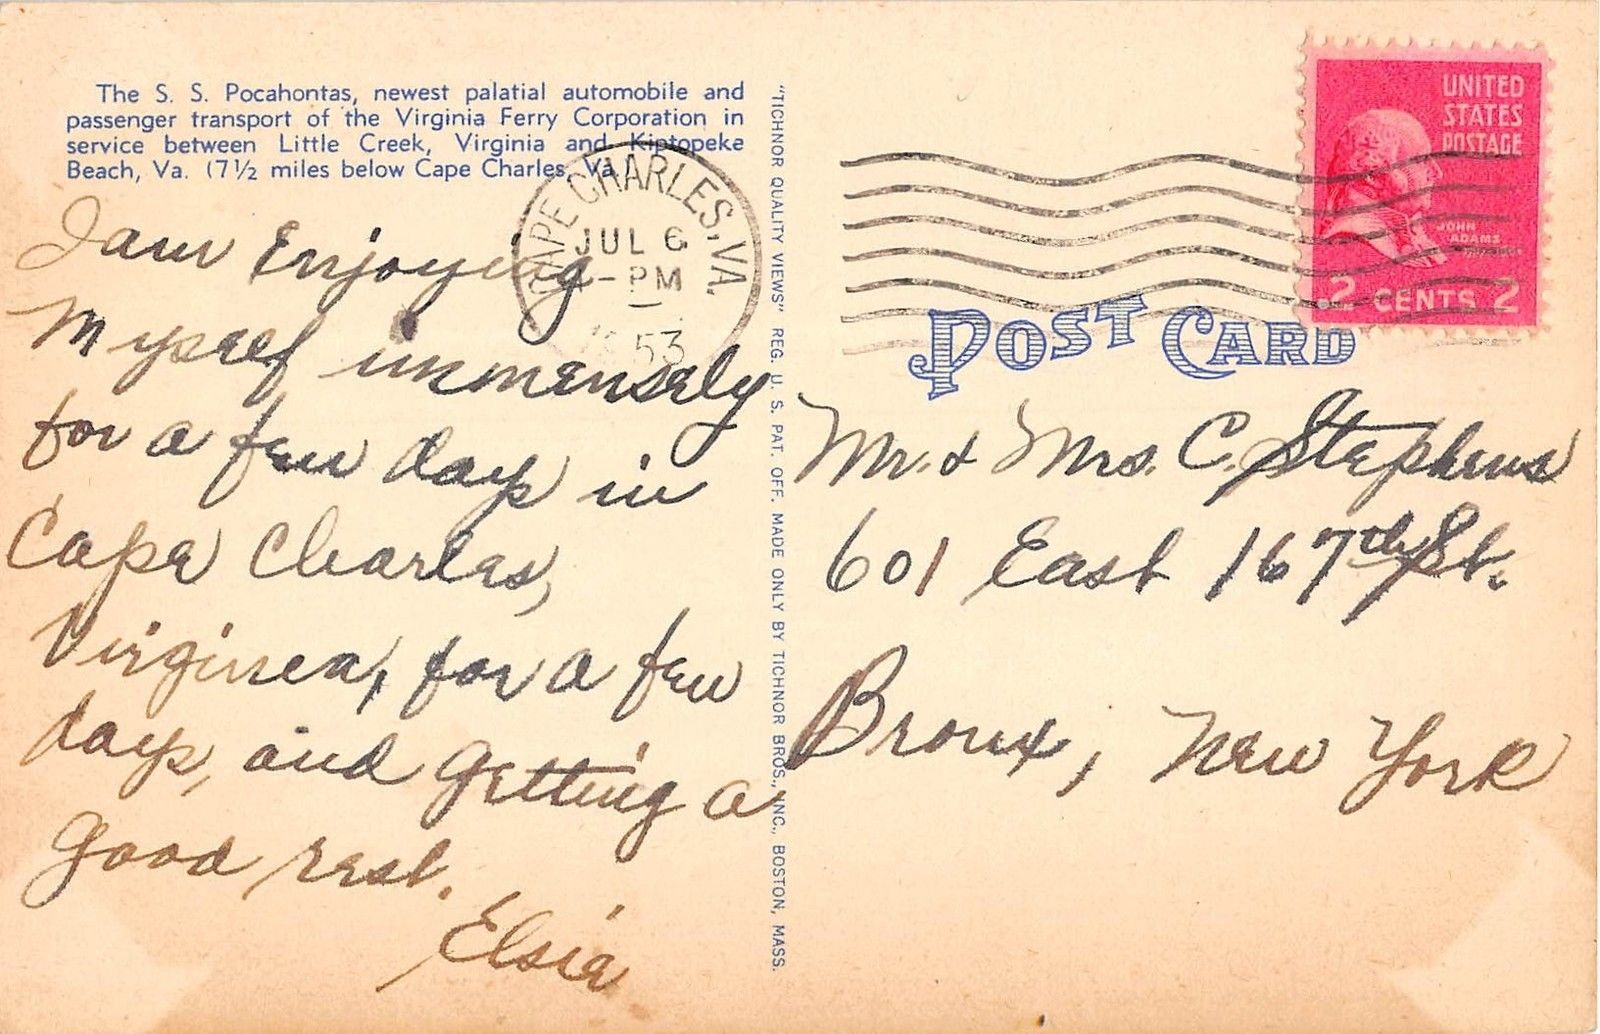 The S. S. Pocahontas, newest palatial automobile and
passenger transport of the Virginia Ferry Corporation in
service between Little Creek, Virginia and Kiptopeke
Beach, Va. (7½ miles below Cape Charles, Va.)
CAPE CHARLES, VA.
JUL 6
-PM
1953
I am Enjoying
Myself immensely
for a few days in
Cape Charles,
Virginia, for a few
days, and getting a
good rest.
Elsie
"TICHNOR QUALITY VIEWS" REG. U. S. PAT. OFF. MADE ONLY BY TICHNOR BROS., INC., BOSTON, MASS.
UNITED
STATES
POSTAGE
JOHN
ADAMS
2 CENTS 2
POST CARD
Mr. & Mrs. C. Stephens
601 East 167th St.
Bronx, New York